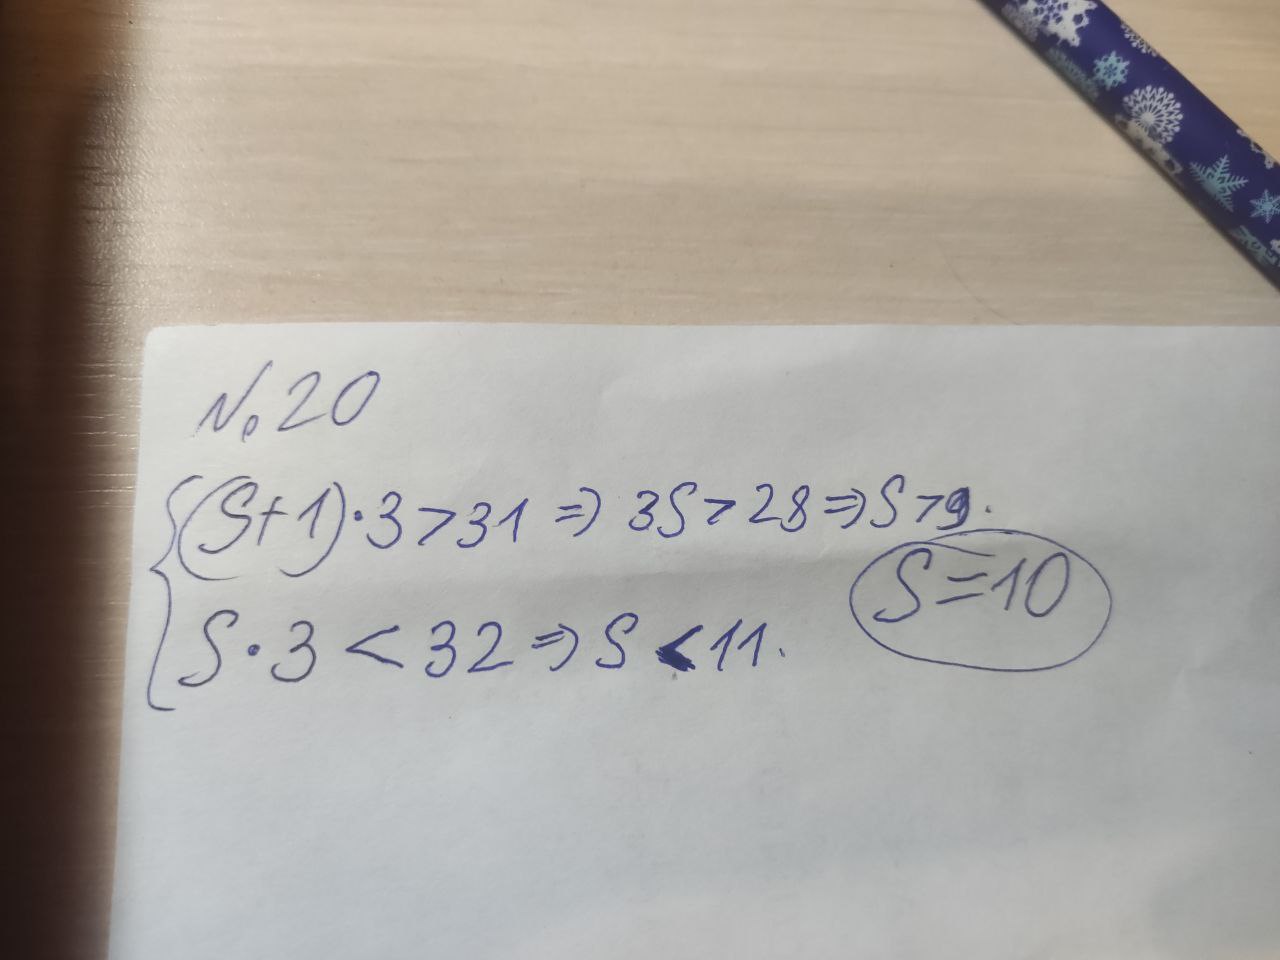 №20
(S+1)·3>31 ⇒ 3S>28 ⇒ S>9.
S·3<32 ⇒ S<11.
S=10